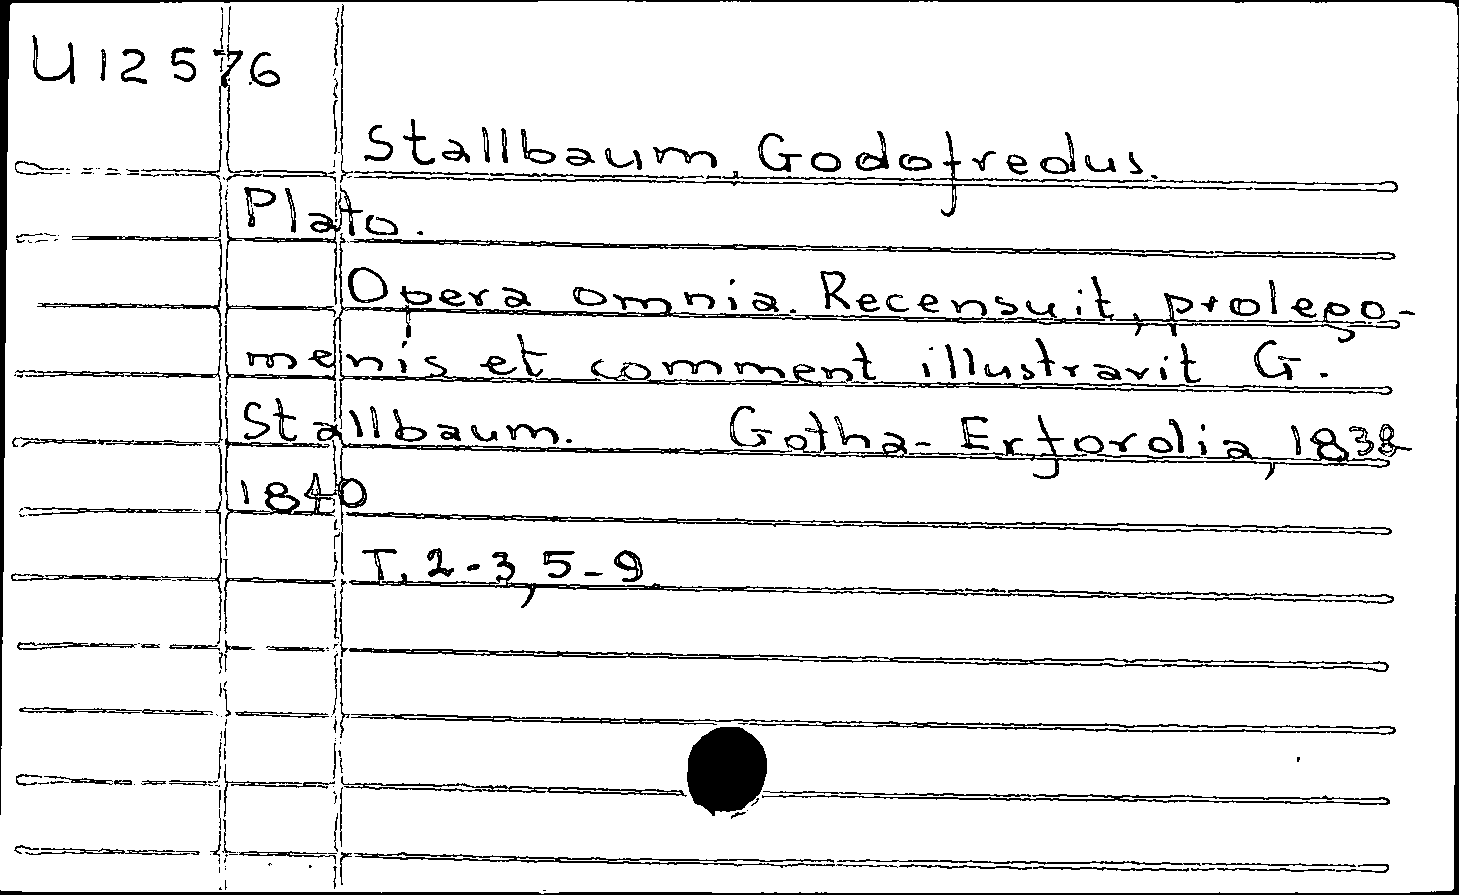 U 12576
Stallbaum, Godofredus.
Plato.
Opera omnia. Recensuit, prolego-
menis et comment illustravit G.
Stallbaum. Gotha-Erfordia, 1838-
1840
T. 2-3, 5-9.